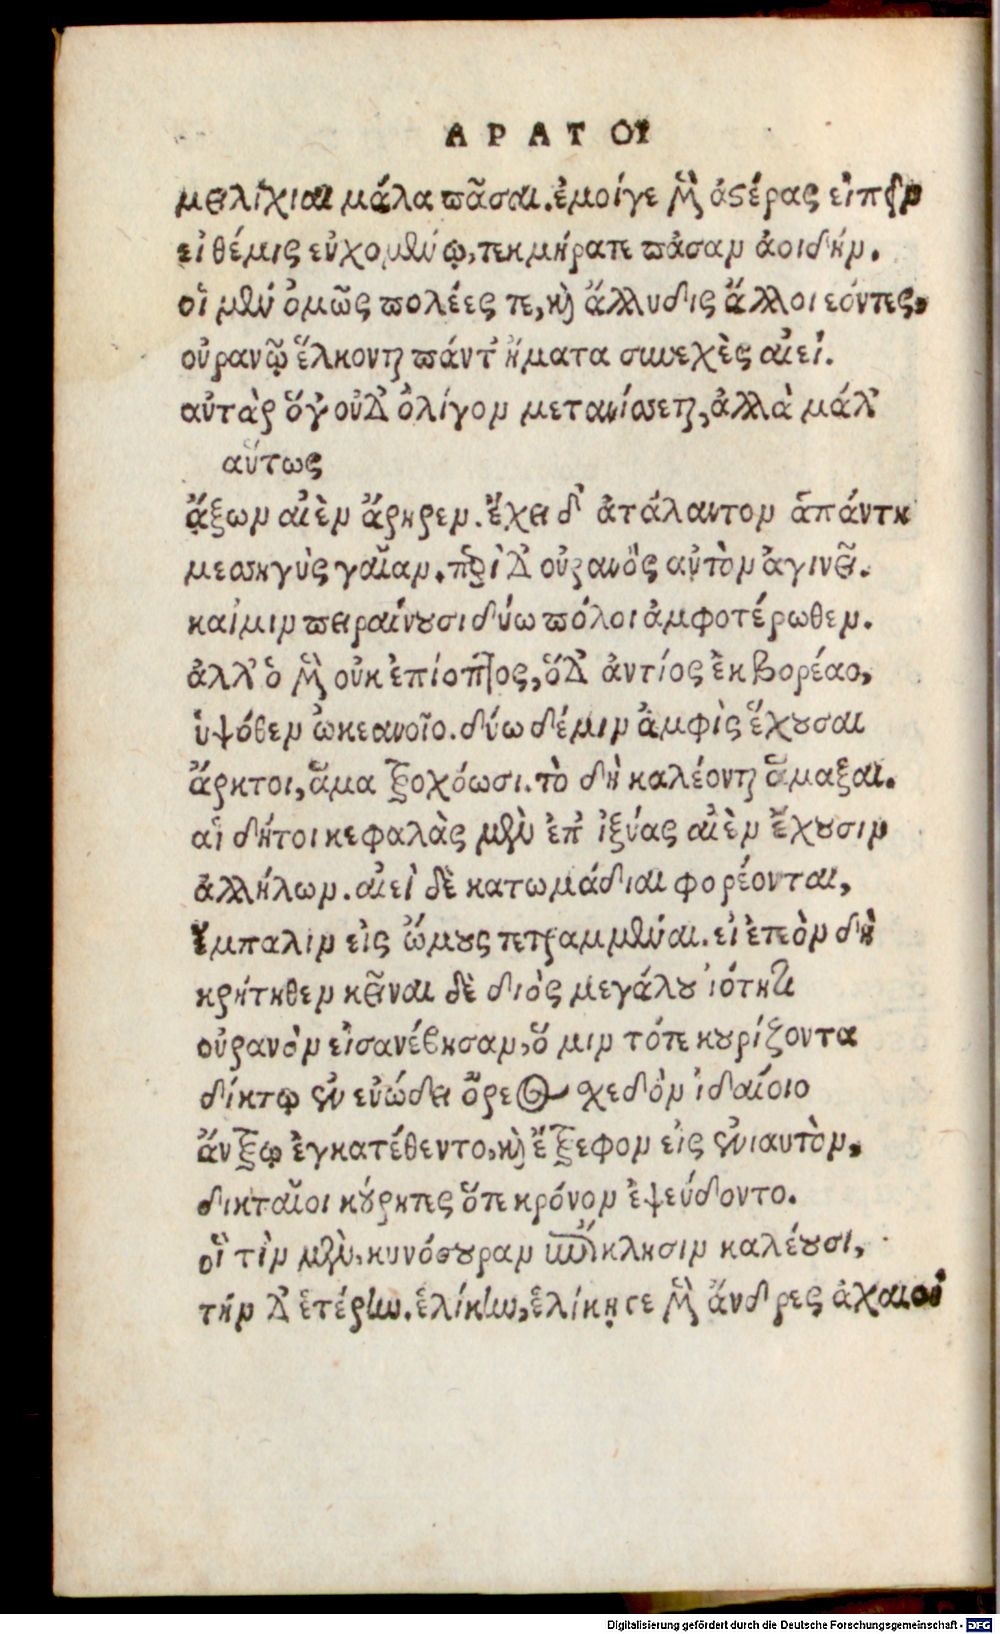 ΑΡΑΤΟΥ
μειλίχιαι μάλα πᾶσαι. ἐμοίγε μὲν ἀστέρας εἰπεῖν
εἰ θέμις εὐχομένῳ, τεκμήρατε πᾶσαν ἀοιδήν.
οἱ μὲν ὁμῶς πολέες τε, καὶ ἄλλυδις ἄλλοι εόντες,
οὐρανῷ ἕλκονται πάντ' ἤματα συνεχὲς αἰεί.
αὐτὰρ ὅγ' οὐδ' ὀλίγον μετανίσσεται, ἀλλὰ μάλ'
αὕτως
ἄξων αἰὲν ἄρηρεν. ἔχει δ' ἀτάλαντον ἁπάντη
μεσσηγὺς γαῖαν. περὶ δ' οὐρανὸς αὐτὸν ἀγινεῖ.
καί μιν πειραίνουσι δύω πόλοι ἀμφοτέρωθεν.
ἀλλ' ὁ μὲν οὐκ ἐπίοπτος, ὅδ' ἀντίος ἐκ βορέαο,
ὑψόθεν ὠκεανοῖο. δύω δέ μιν ἀμφὶς ἔχουσαι
ἄρκτοι, ἅμα τροχόωσι. τὸ δὴ καλέονται ἅμαξαι.
αἱ δήτοι κεφαλὰς μὲν ἐπ' ἰξύας αἰὲν ἔχουσιν
ἀλλήλων. αἰεὶ δὲ κατωμάδιαι φορέονται,
ἔμπαλιν εἰς ὤμους τετραμμέναι. εἰ ἐτεὸν δὴ
κρήτηθεν κεῖναι δὲ διὸς μεγάλου ἰότητι
οὐρανὸν εἰσανέβησαν, ὅ μιν τότε κουρίζοντα
δίκτῳ ἐν εὐώδει ὄρεος σχεδὸν ἰδαίοιο
ἄντρῳ ἐγκατέθεντο, καὶ ἔτρεφον εἰς ἐνιαυτὸν,
δικταῖοι κούρητες ὅτε κρόνον ἐψεύδοντο.
οἳ τὴν μὲν, κυνόσουραν ἐπίκλησιν καλέουσι,
τὴν δ' ἑτέρην. ἑλίκην, ἑλίκῃ γε μὲν ἄνδρες ἀχαιοὶ
Digitalisierung gefördert durch die Deutsche Forschungsgemeinschaft - DFG